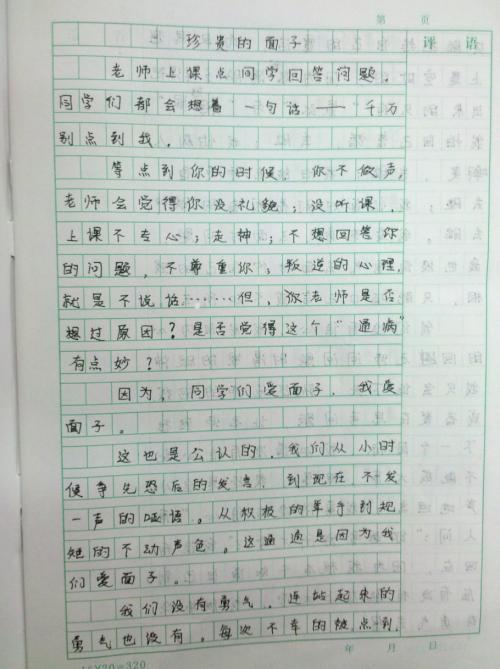 第 页
评 语
珍贵的面子
老师上课点同学回答问题,
同学们都会想着一句话——千万
别点到我。
等点到你的时候,你不做声,
老师会觉得你没礼貌;没听课,
上课不专心;走神;不想回答你
的问题,不尊重你;叛逆的心理,
就是不说话……但,你老师是否
想过原因?是否觉得这个“通病”
有点妙?
因为,同学们爱面子,我爱
面子。
这也是公认的,我们从小时
候争先恐后的发言,到现在不发
一声的哑语。从积极的举手到规
矩的不动声色。这通通是因为我
们爱面子。
我们没有勇气,连站起来的
勇气也没有。每次不幸的被点到,
年 月 日
16X20=320